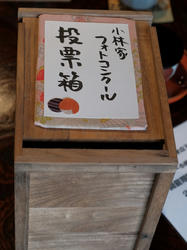 小林家
フォトコンクール
投票箱